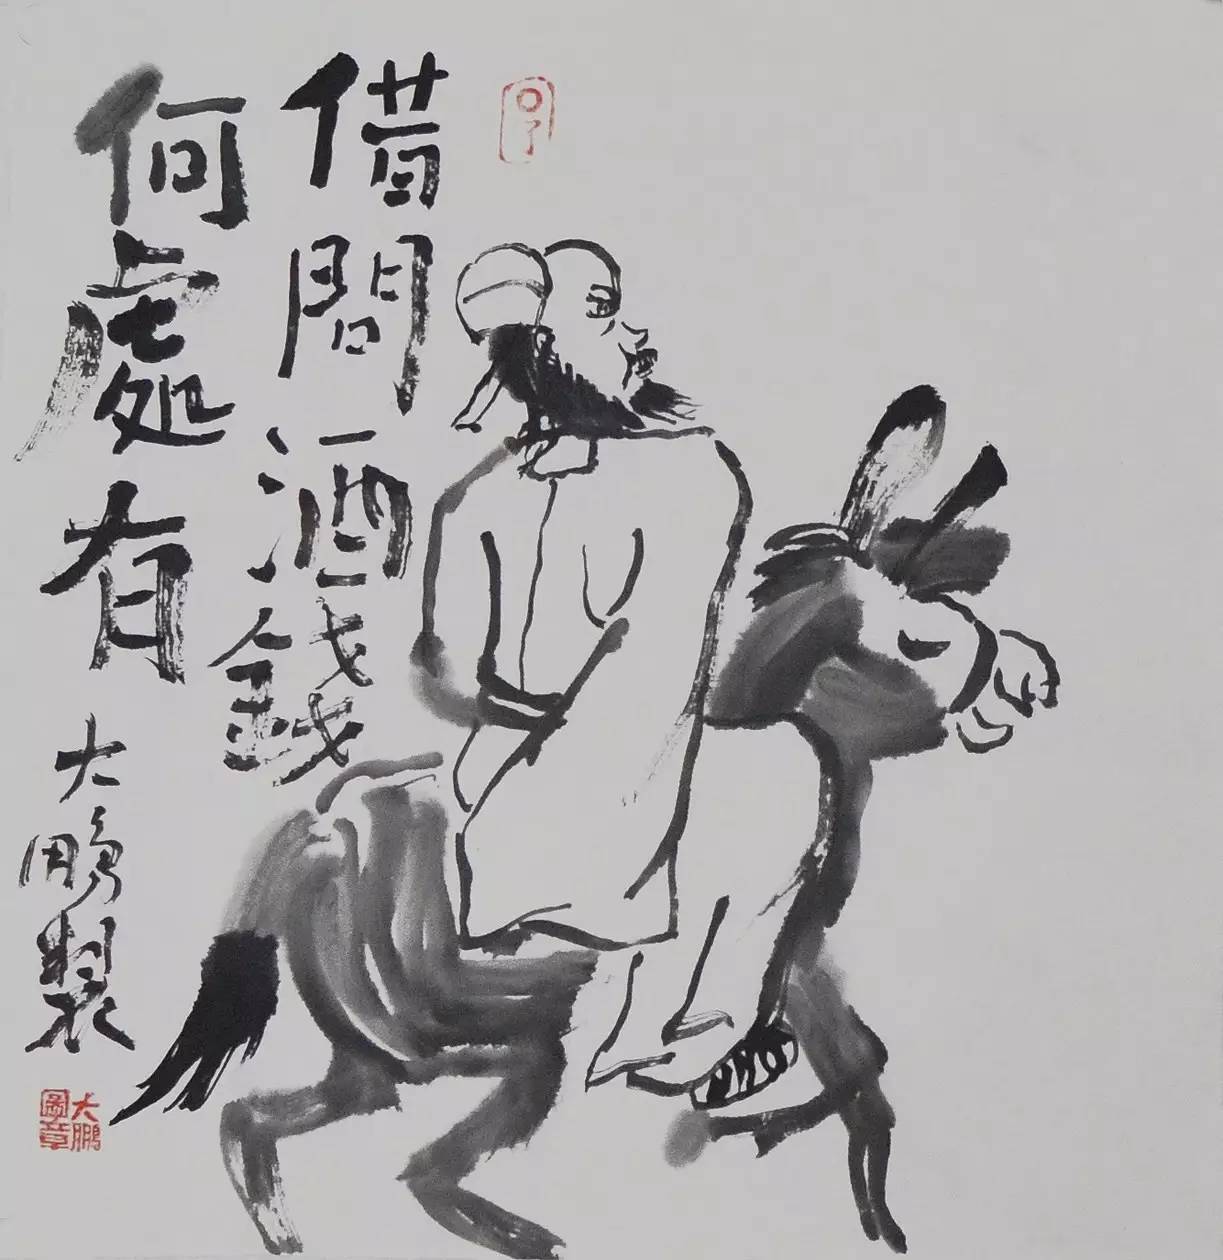 借問酒錢
何處有
大鵬製
大鵬圖章